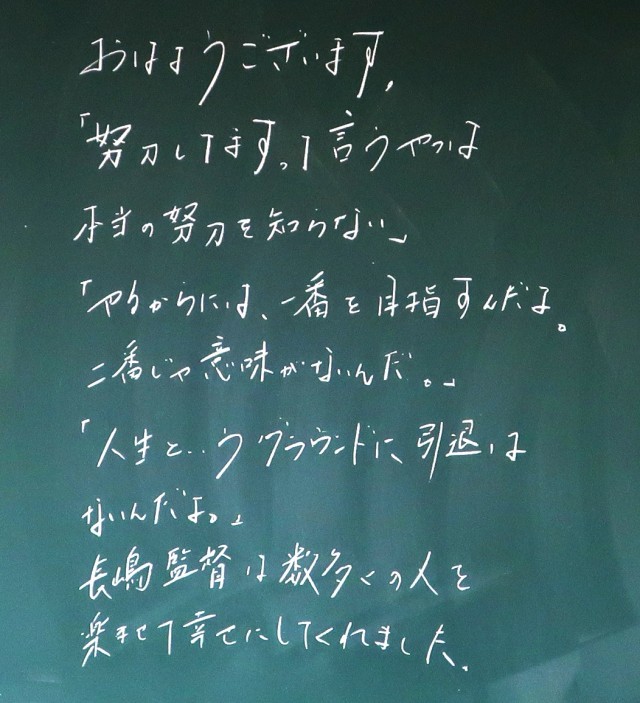 おはようございます。
「努力してます。って言うやつは
本当の努力を知らない」
「やるからには、一番を目指すんだよ。
二番じゃ意味がないんだ。」
「人生というグラウンドに、引退は
ないんだよ。」
長嶋監督は数多くの人を
楽ませて幸せにしてくれました。